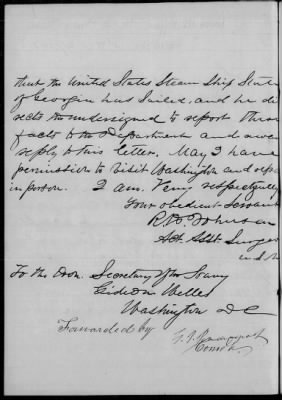 that the United States Steam Ship State
of Georgia has Sailed, and he di
rects the undersigned to report these
facts to the Department and await
reply to this letter. May I have
permission to Visit Washington and report
in person. I am. Very respectfully
Your obedient Servant
R. B. Johnson
Act. Asst. Surgeon
To the Hon. Secretary of the Navy
Gideon Welles
Washington D C
Forwarded by